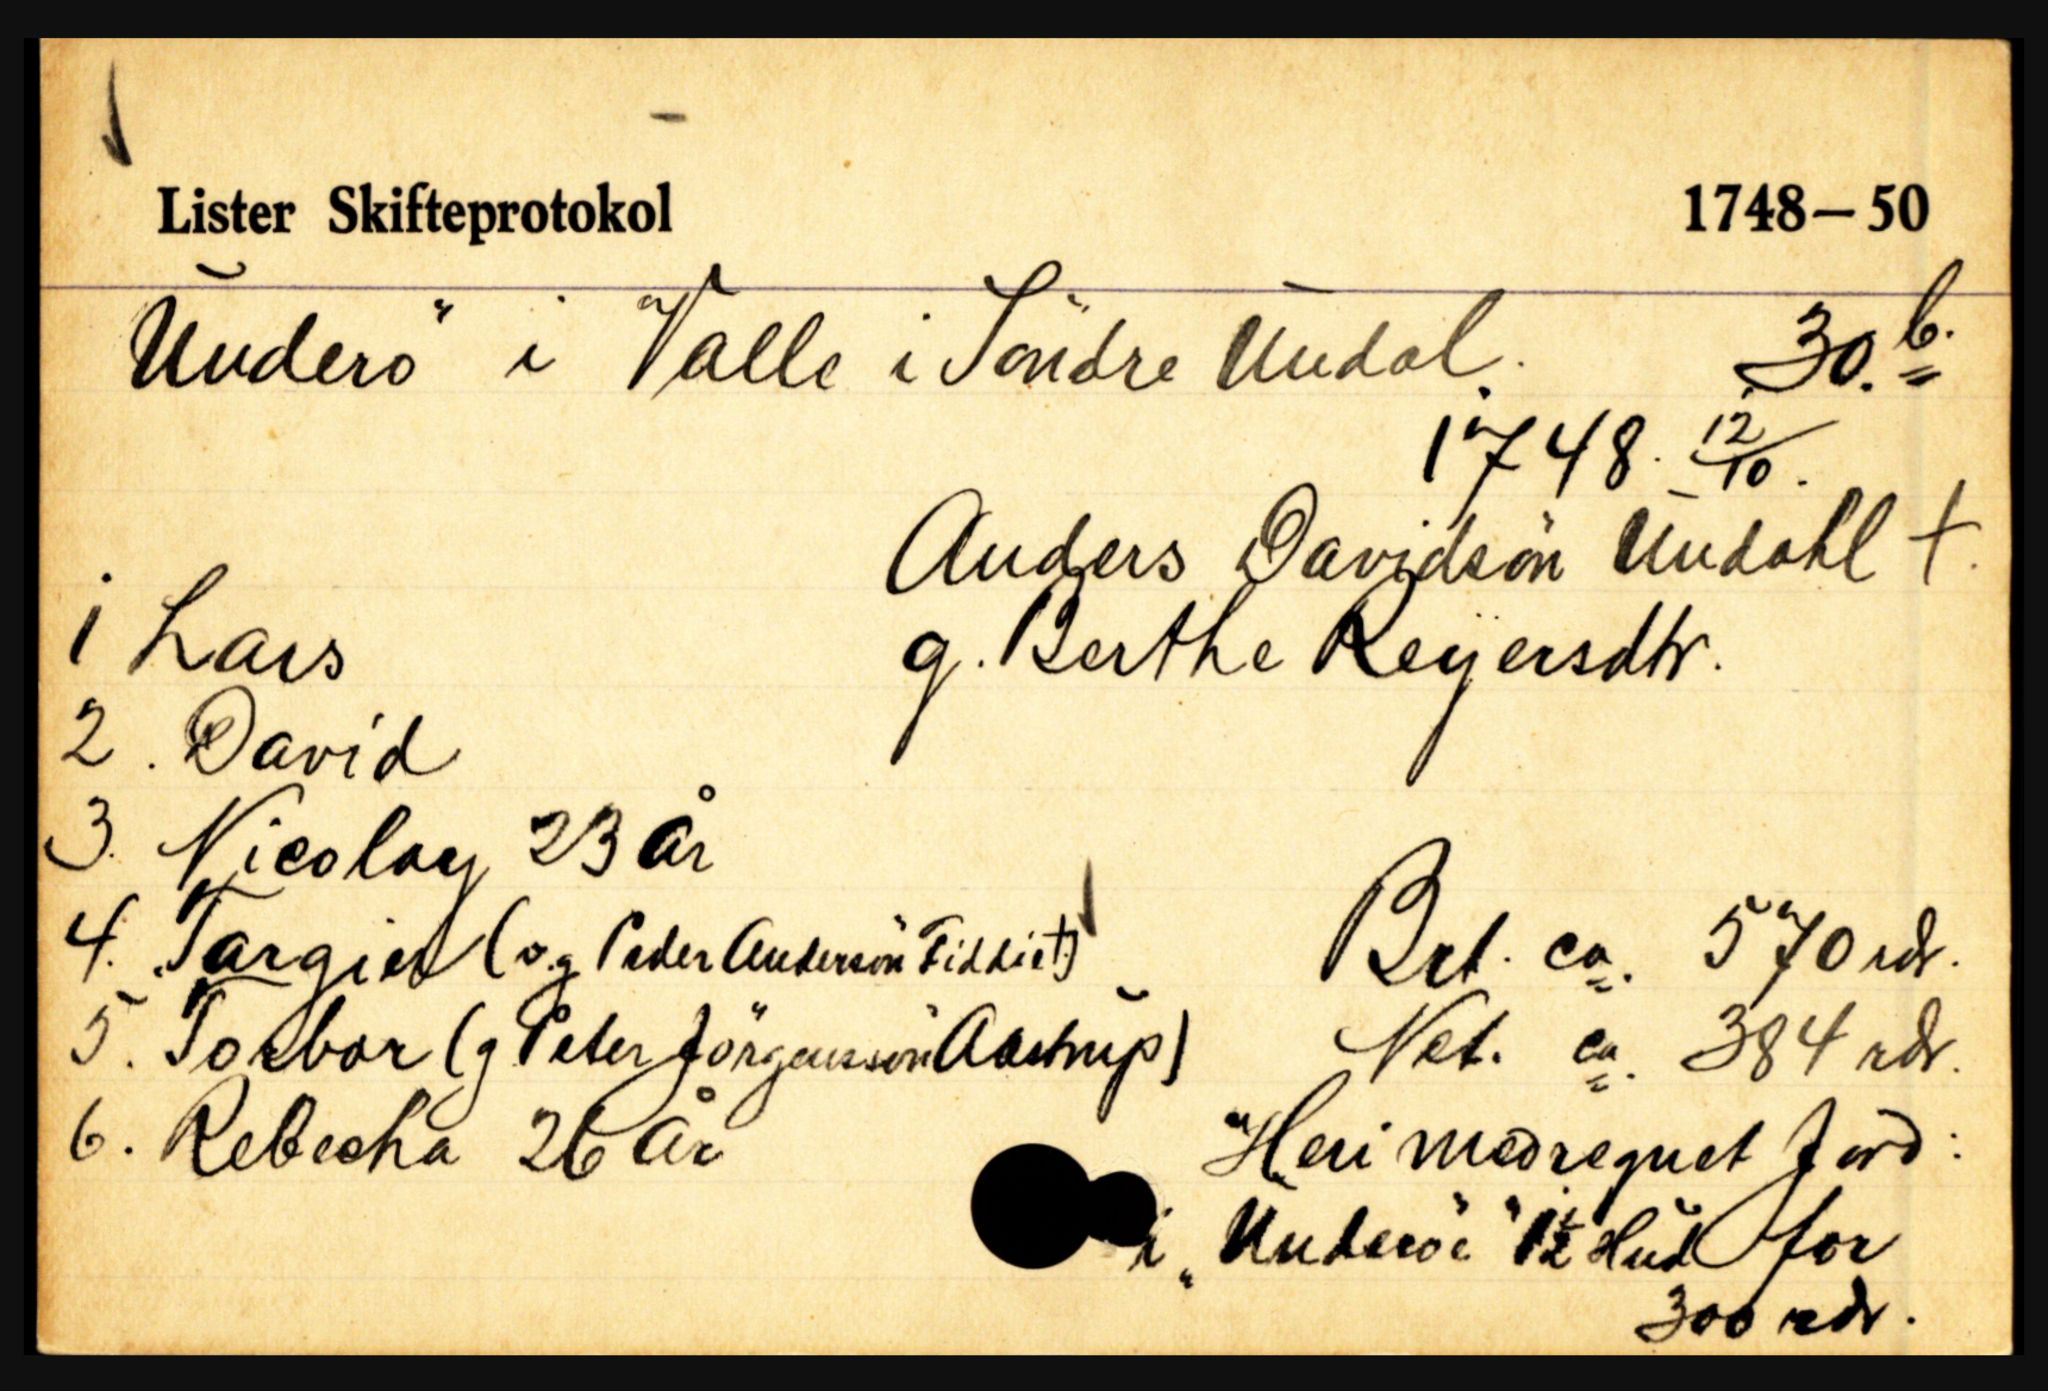 Lister Skifteprotokol 1748–50
Underö i Valle i Söndre Undal. 30.b.
1748. 12/10.
Anders Davidsön Undahl †.
g. Berthe Reyersdtr.
1 Lars
2. David
3. Nicolay 23 år
4. Targier (v.g Peder Andersön Fiddie†)
5. Torbor (g Peter Jörgenssön Aastrup)
6. Rebecha 26 år
Brt. ca. 570 rdr.
Net. ca. 384 rdr.
Heri medregnet Jord:
i „Underöe" 1½ Hud for
300 rdr.